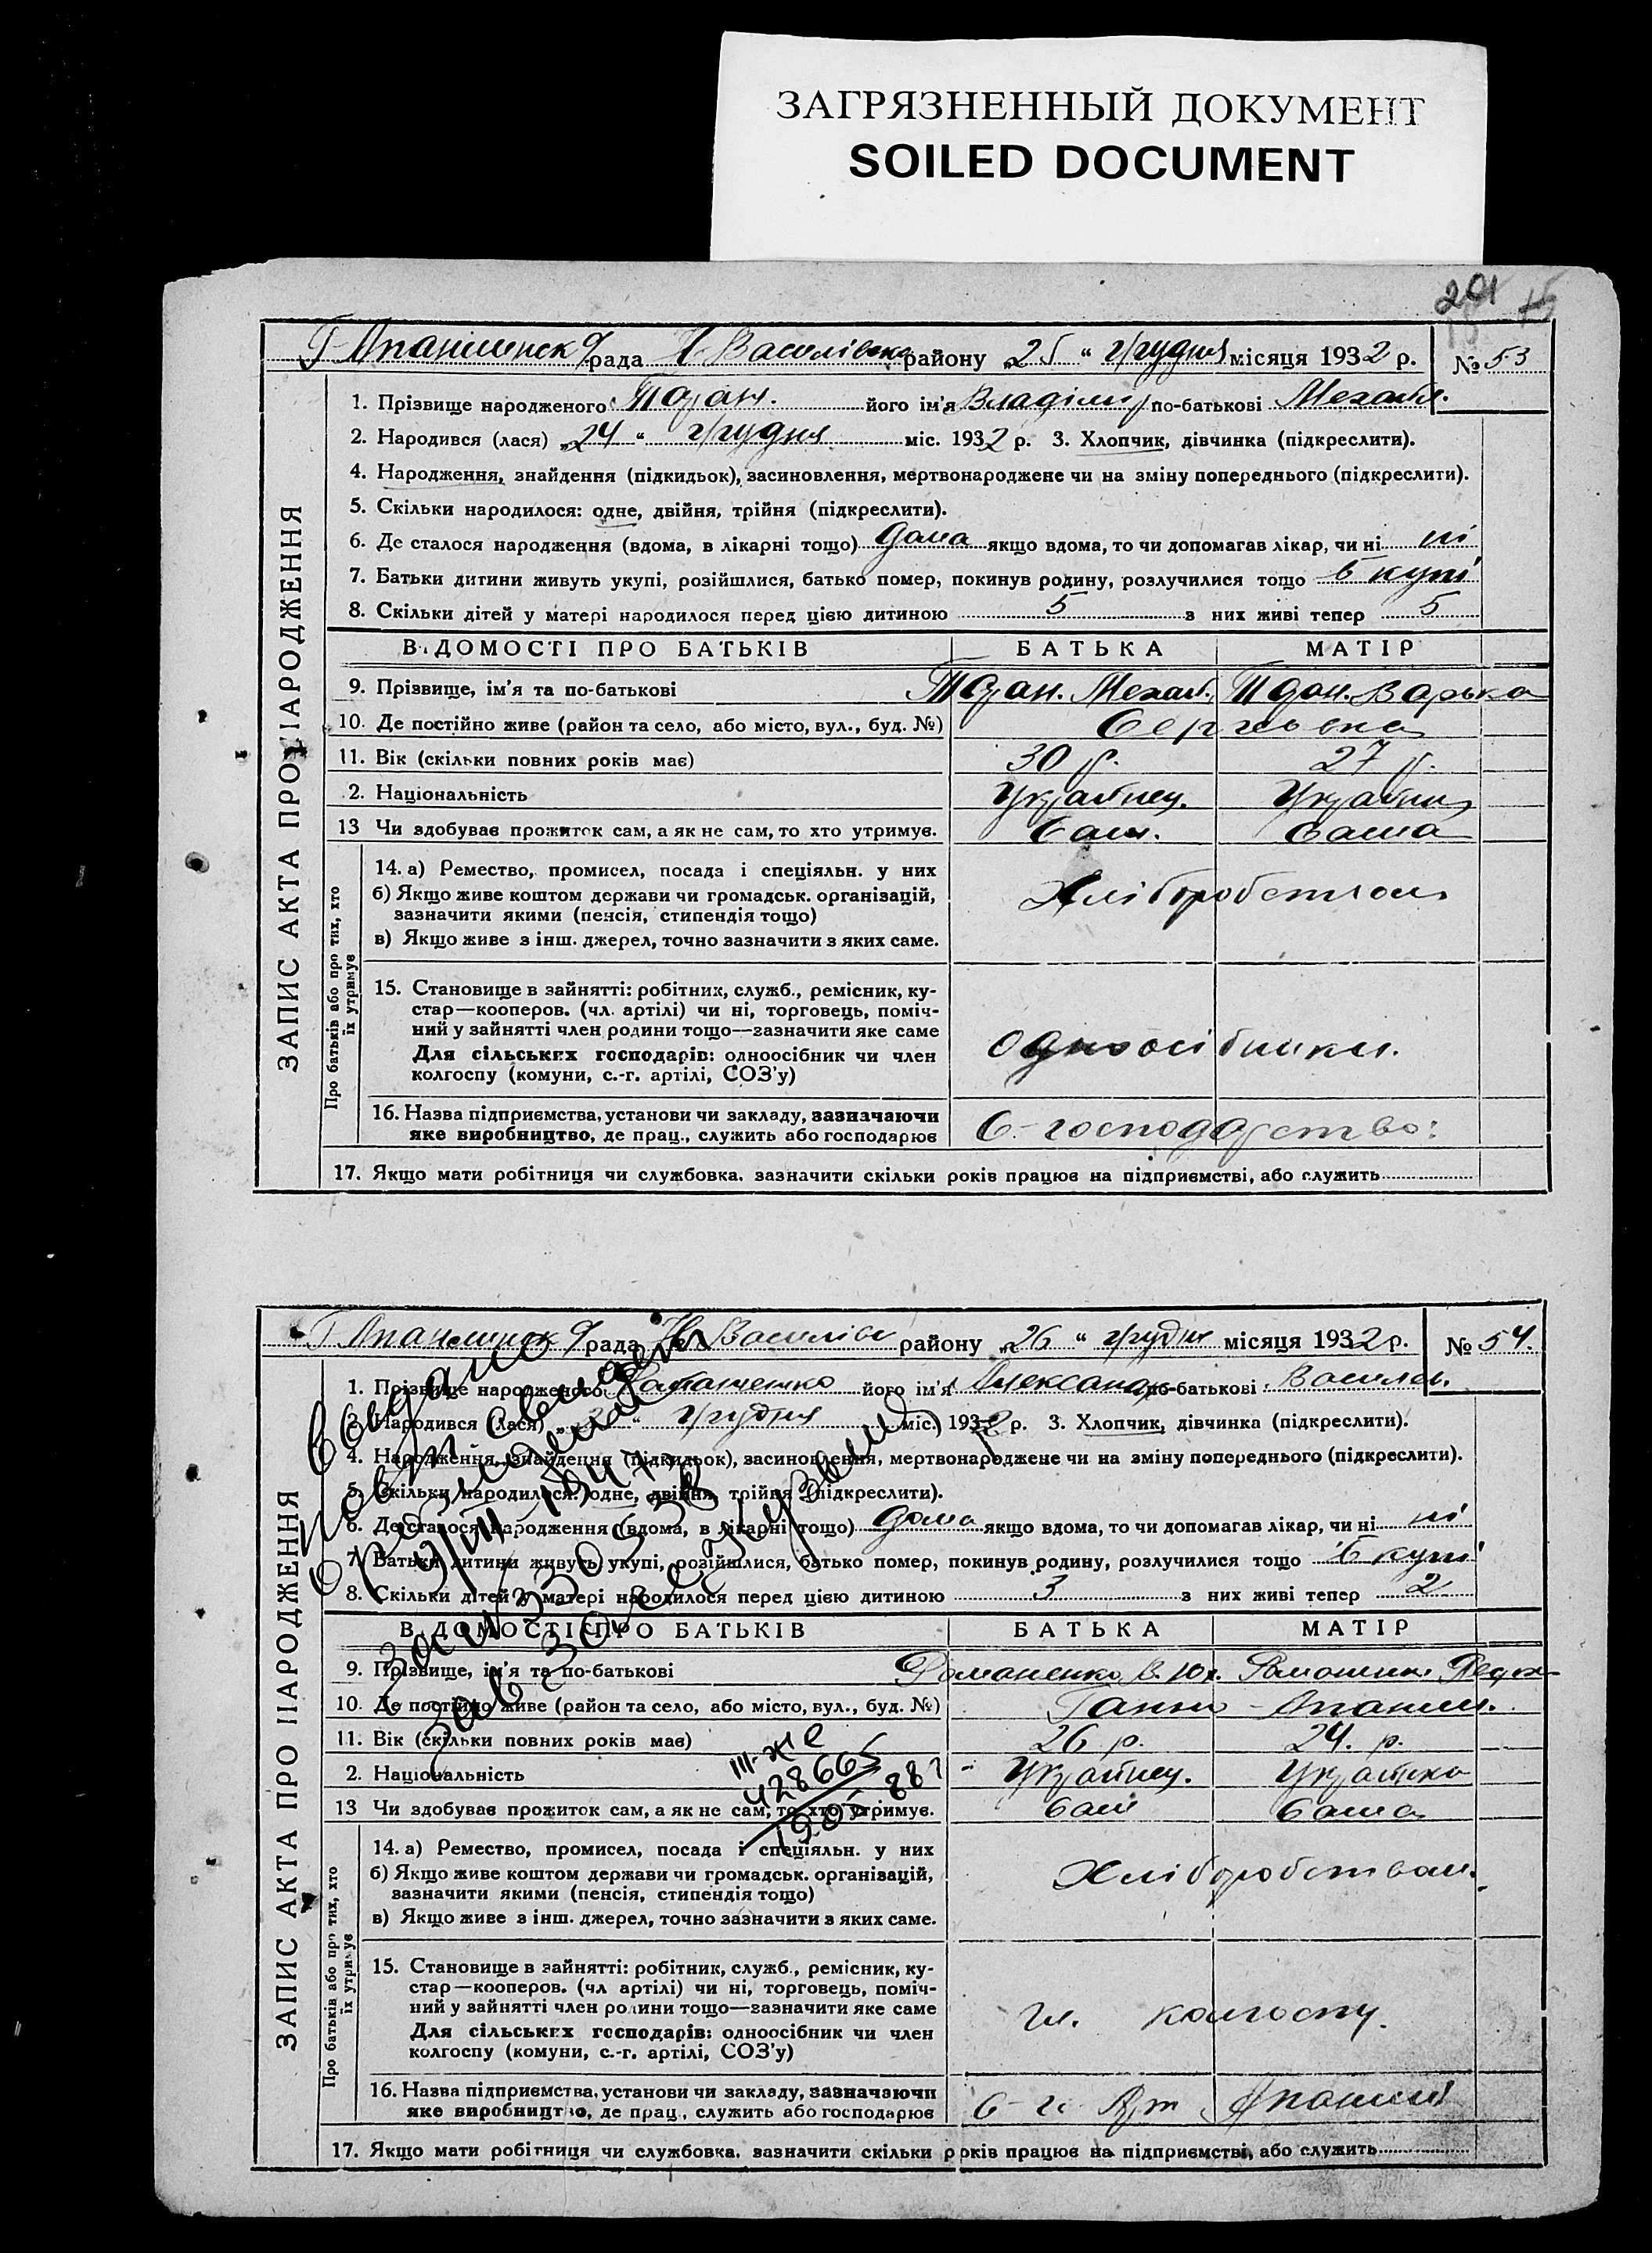 ЗАГРЯЗНЕННЫЙ ДОКУМЕНТ
SOILED DOCUMENT
201
рада Н Василівськ району „25" грудня місяця 1932 р. № 53
ЗАПИС АКТА ПРО НАРОДЖЕННЯ
1. Прізвище народженого його ім'я Владімир по-батькові
2. Народився (лася) „24" грудня міс. 1932 р. 3. Хлопчик, дівчинка (підкреслити).
4. Народження, знайдення (підкидьок), засиновлення, мертвонароджене чи на зміну попереднього (підкреслити).
5. Скільки народилося: одне, двійня, трійня (підкреслити).
6. Де сталося народження (вдома, в лікарні тощо) дома якщо вдома, то чи допомагав лікар, чи ні ні
7. Батьки дитини живуть укупі, розійшлися, батько помер, покинув родину, розлучилися тощо в купі
8. Скільки дітей у матері народилося перед цією дитиною 5 з них живі тепер 5
ВІДОМОСТІ ПРО БАТЬКІВ БАТЬКА МАТІР
9. Прізвище, ім'я та по-батькові Варька
10. Де постійно живе (район та село, або місто, вул., буд. №) Сергієвка
11. Вік (скільки повних років має) 30 р. 27 р.
2. Національність Українец. Українка
13 Чи здобуває прожиток сам, а як не сам, то хто утримує. Сам. Сама
Про батьків або про тих, хто їх утримує
14. а) Ремество, промисел, посада і спеціяльн. у них
б) Якщо живе коштом держави чи громадськ. організацій,
зазначити якими (пенсія, стипендія тощо)
Хліборобством
в) Якщо живе з інш. джерел, точно зазначити з яких саме.
15. Становище в зайнятті: робітник, служб., ремісник, ку-
стар—кооперов. (чл. артілі) чи ні, торговець, поміч-
ний у зайнятті член родини тощо—зазначити яке саме
Для сільських господарів: одноосібник чи член
колгоспу (комуни, с.-г. артілі, СОЗ'у)
Одноосібники.
16. Назва підприємства, установи чи закладу, зазначаючи
яке виробництво, де прац., служить або господарює
С-господарство:
17. Якщо мати робітниця чи службовка. зазначити скільки років працює на підприємстві, або служить
рада Н Василівс району „26" грудня місяця 1932 р. № 54.
ЗАПИС АКТА ПРО НАРОДЖЕННЯ
1. Прізвище народженого його ім'я Александр по-батькові Василь.
2. Народився (лася) грудня міс. 1932 р. 3. Хлопчик, дівчинка (підкреслити).
4. Народження, знайдення (підкидьок), засиновлення, мертвонароджене чи на зміну попереднього (підкреслити).
5. Скільки народилося: одне, двійня, трійня (підкреслити).
6. Де сталося народження (вдома, в лікарні тощо) дома якщо вдома, то чи допомагав лікар, чи ні ні
7. Батьки дитини живуть укупі, розійшлися, батько помер, покинув родину, розлучилися тощо в купі
8. Скільки дітей у матері народилося перед цією дитиною 3 з них живі тепер 2
ВІДОМОСТІ ПРО БАТЬКІВ БАТЬКА МАТІР
9. Прізвище, ім'я та по-батькові Романенко В.
10. Де постійно живе (район та село, або місто, вул., буд. №) Ганно-
11. Вік (скільки повних років має) 26 р. 24. р.
2. Національність Українец. Українка
13 Чи здобуває прожиток сам, а як не сам, то хто утримує. Сам Сама
Про батьків або про тих, хто їх утримує
14. а) Ремество, промисел, посада і спеціяльн. у них
б) Якщо живе коштом держави чи громадськ. організацій,
зазначити якими (пенсія, стипендія тощо)
Хліборобством.
в) Якщо живе з інш. джерел, точно зазначити з яких саме.
15. Становище в зайнятті: робітник, служб., ремісник, ку-
стар—кооперов. (чл артілі) чи ні, торговець, поміч-
ний у зайнятті член родини тощо—зазначити яке саме
Для сільських господарів: одноосібник чи член
колгоспу (комуни, с.-г. артілі, СОЗ'у)
чл. колгоспу.
16. Назва підприємства, установи чи закладу, зазначаючи
яке виробництво, де прац., служить або господарює
С-г. Арт
17. Якщо мати робітниця чи службовка. зазначити скільки років працює на підприємстві, або служить
Видано
повт. свидет
о рождении